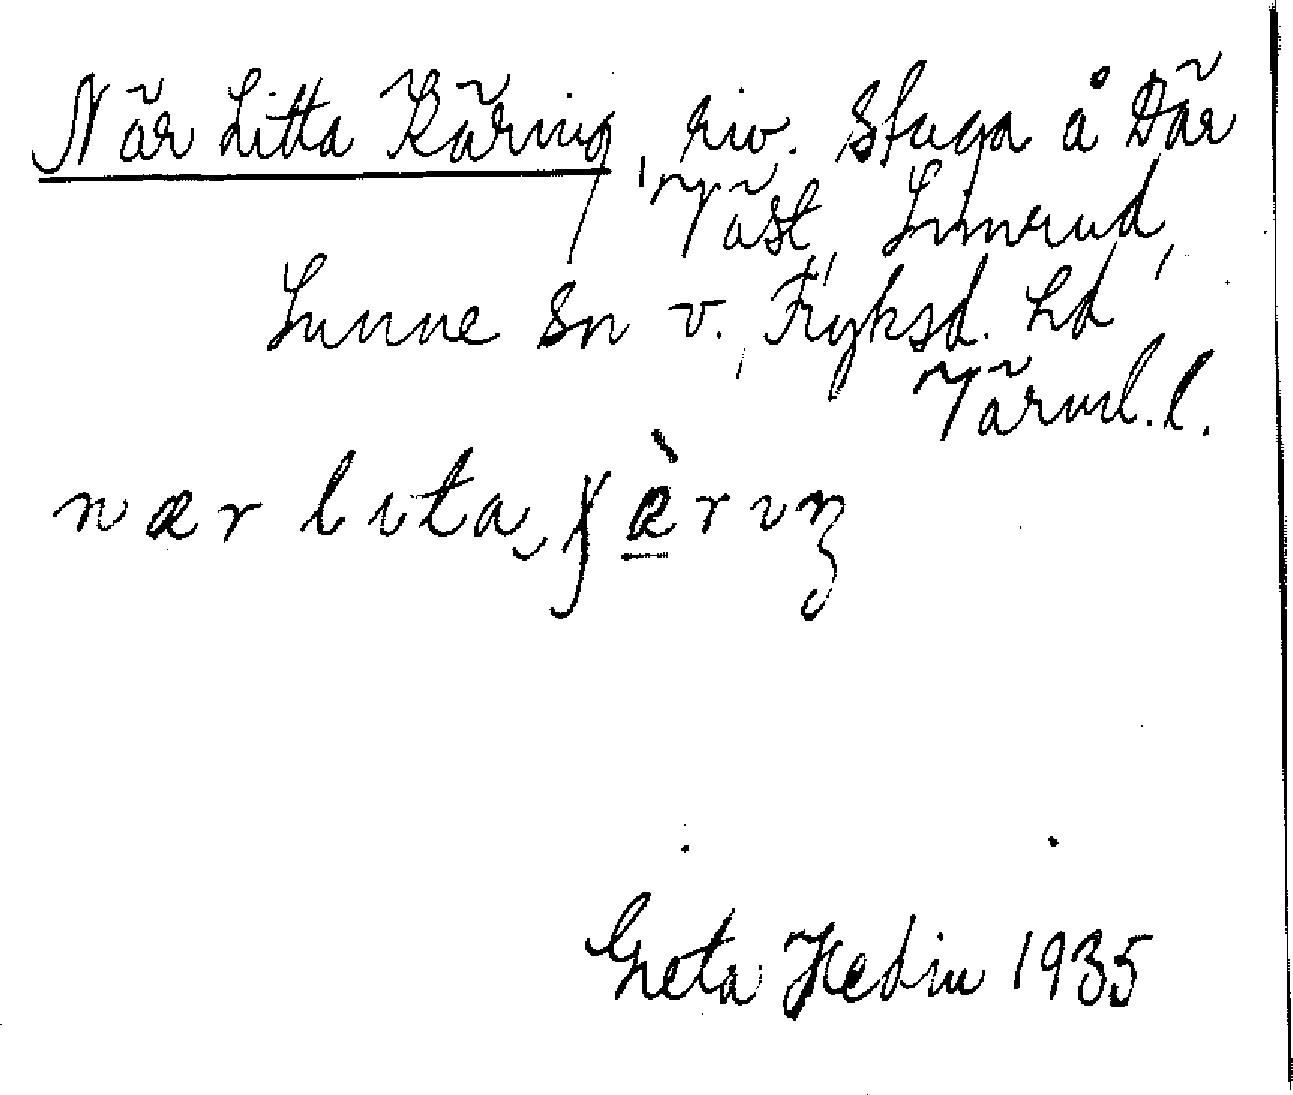 När Litta Käring, riv. stuga å Där
Väst, Limrud,
Sunne Sn v., Fryksd. hd
Värml. l.
nær lıta ʃæ̀rıŋ
Greta Hedin 1935